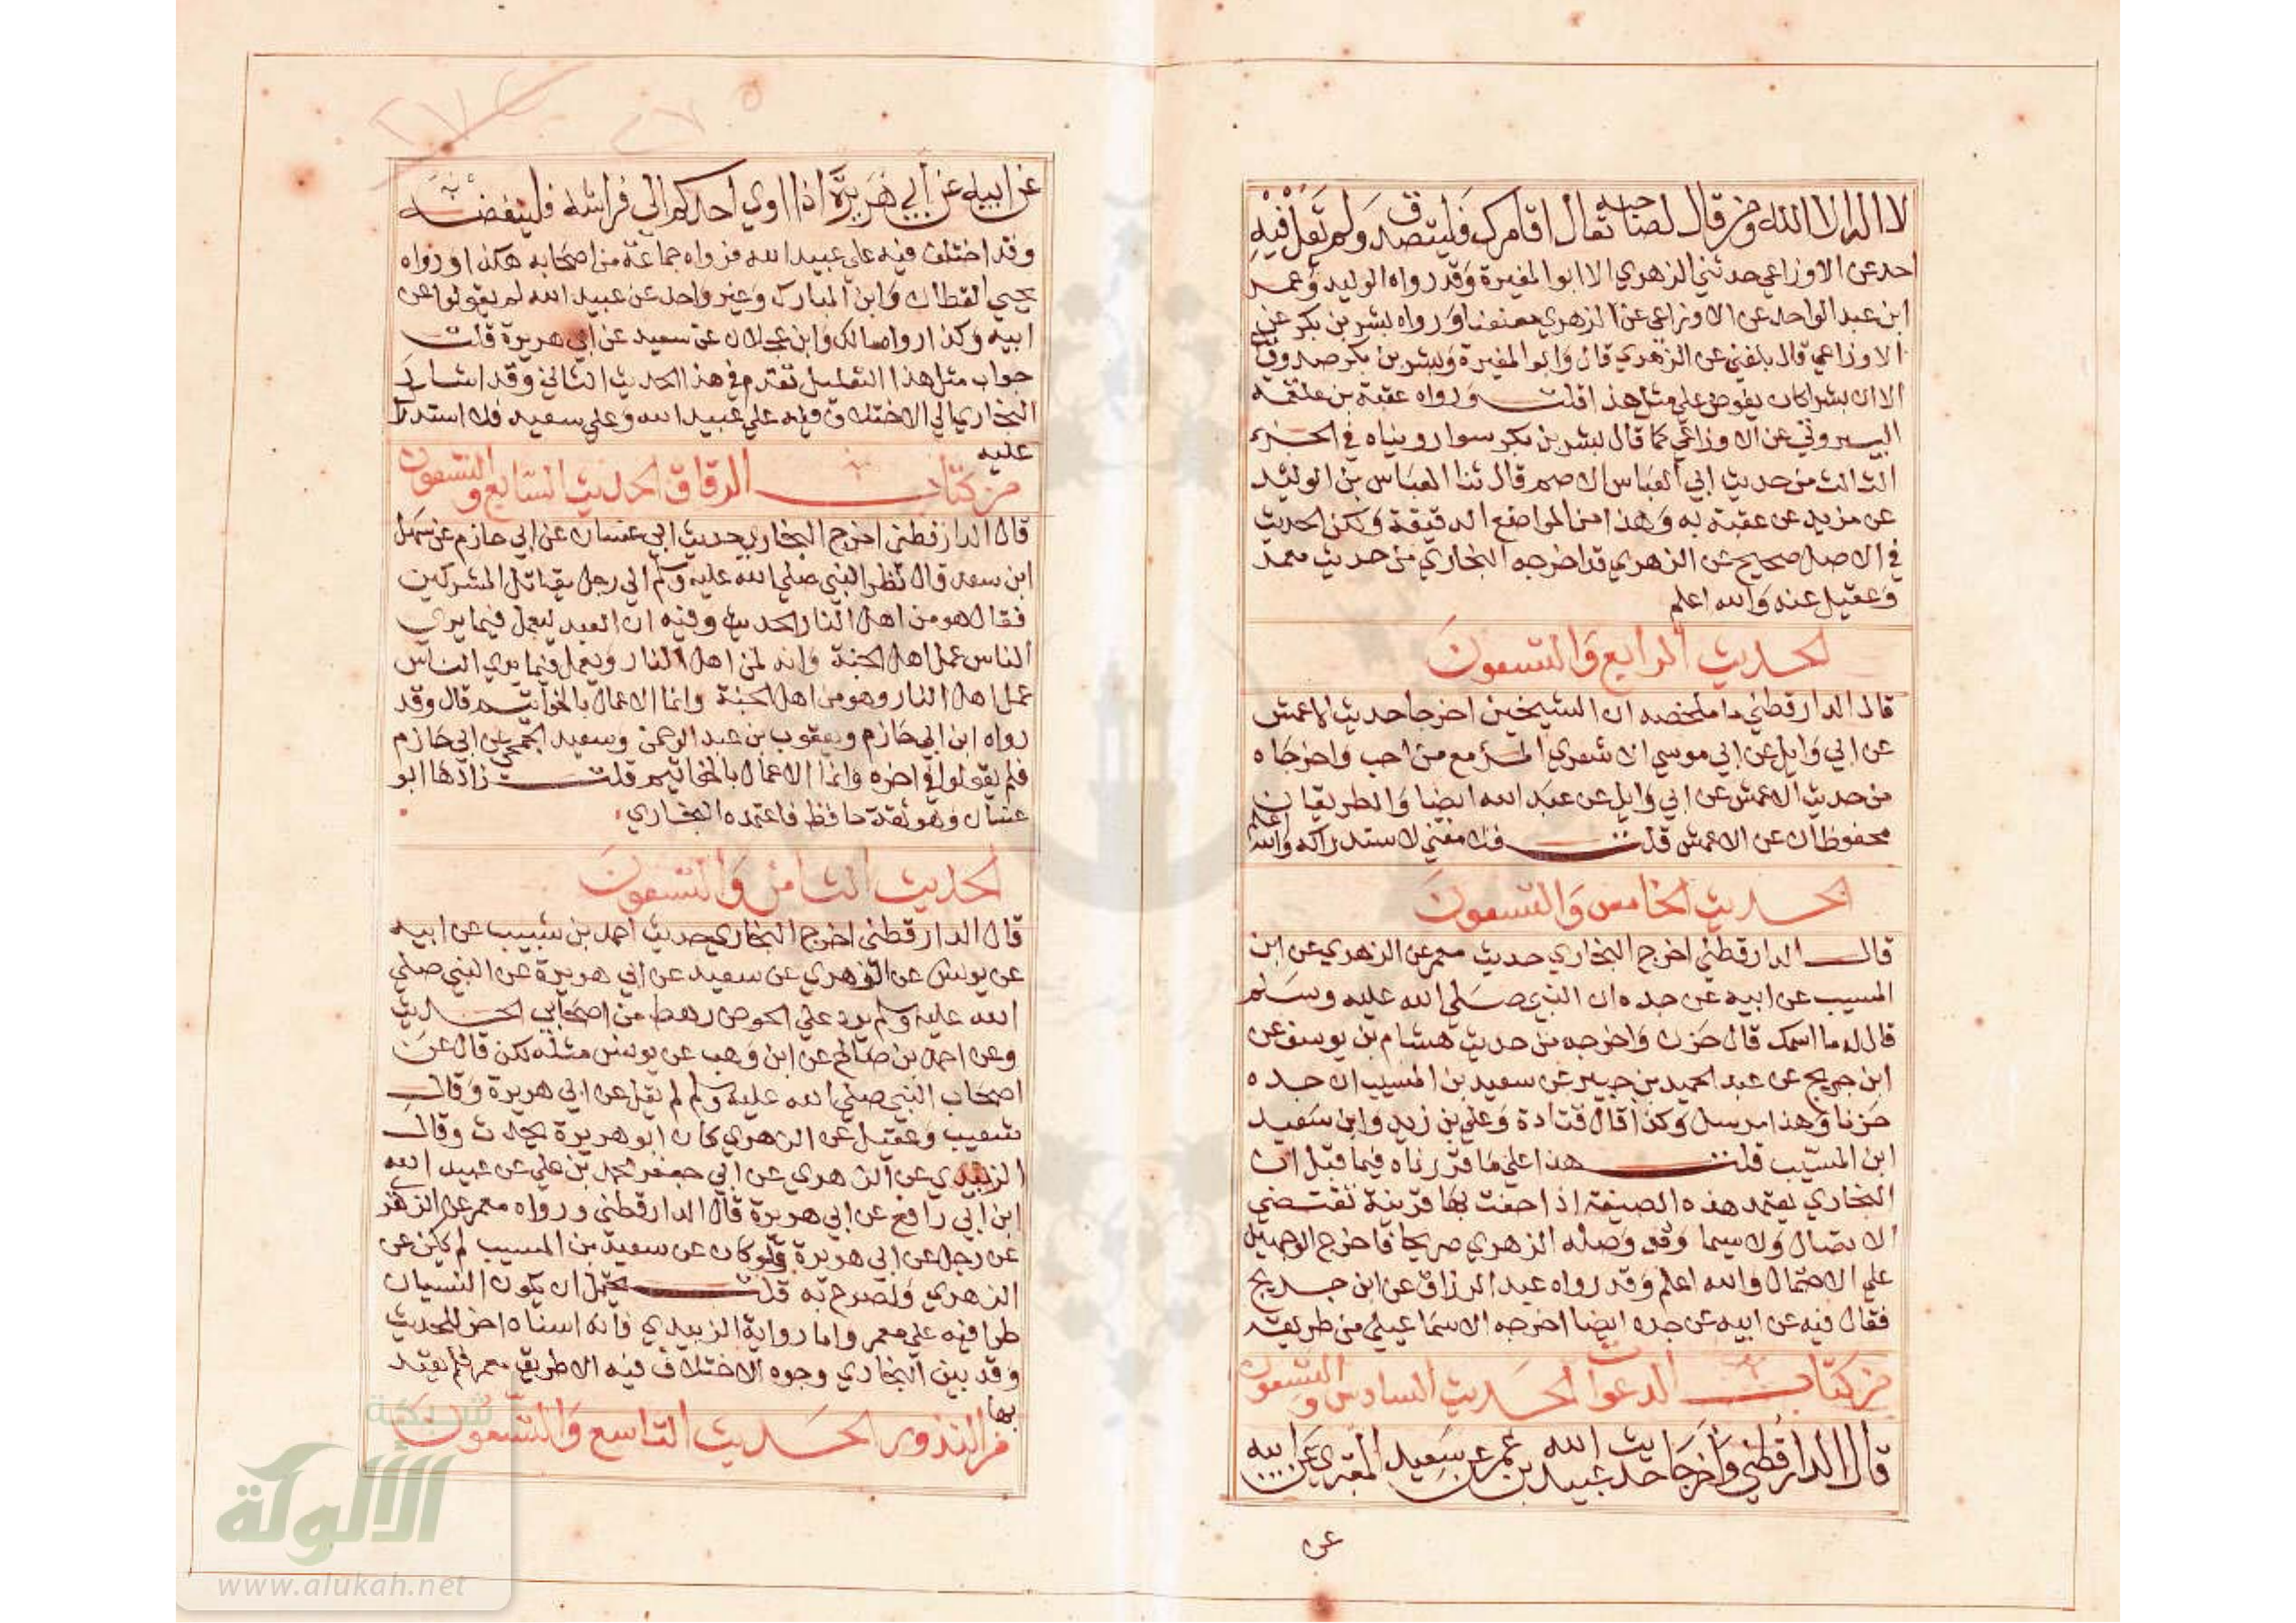 لا اله الا الله ومن قال لصاحبه تعال اقامرك فليتصدق ولم يقل فيه
احد عن الاوزاعي حدثني الزهري الا ابو المغيرة وقد رواه الوليد وعمر
ابن عبد الواحد عن الاوزاعي عن الزهري معنعنا ورواه بشر بن بكر عن
الاوزاعي قال بلغني عن الزهري قال وابو المغيرة وبشر بن بكر صدوقان
الا ان بشرا كان يفوض علي مثل هذا قلت ورواه عقبة بن علقمة
البيروتي عن الاوزاعي كما قال بشر بن بكر سوا رويناه في الجزء
الثالث من حديث ابي العباس الاصم قال ثنا العباس بن الوليد
عن مزيد عن عقبة به وهذا من المواضع الدقيقة ولكن الحديث
في الاصل صحيح عن الزهري قد اخرجه البخاري من حديث معمر
وعقيل عنه والله اعلم
الحديث الرابع والتسعون
قال الدارقطني ما ملخصه ان الشيخين اخرجا حديث الاعمش
عن ابي وايل عن ابي موسي الاشعري المرء مع من احب واخرجاه
من حديث الاعمش عن ابي وايل عن عبد الله ايضا والطريقان
محفوظان عن الاعمش قلت فلا معني لاستدراكه والله اعلم
الحديث الخامس والتسعون
قال الدارقطني اخرج البخاري حديث معمر عن الزهري عن ابن
المسيب عن ابيه عن جده ان النبي صلي الله عليه وسلم
قال له ما اسمك قال حزن واخرجه من حديث هشام بن يوسف عن
ابن جريج عن عبد الحميد بن جبير عن سعيد بن المسيب ان جده
حزنا وهذا مرسل وكذا قال قتادة وعلي بن زيد وابن سعيد
ابن المسيب قلت هذا علي ما قررناه فيما قبل ان
البخاري يعتمد هذه الصيغة اذا حفت بها قرينة تقتضي
الاتصال ولا سيما وقد وصله الزهري صريحا فاخرج الوجهين
علي الاحتمال والله اعلم وقد رواه عبد الرزاق عن ابن جريج
فقال فيه عن ابيه عن جده ايضا اخرجه الاسماعيلي من طريقه
من كتاب الدعوات الحديث السادس والتسعون
قال الدارقطني واخرجا حديث عبيد الله بن عمر عن سعيد المقبري عن ابيه
عن
عن ابيه عن ابي هريرة اذا اوي احدكم الي فراشه فلينفضه
وقد اختلف فيه علي عبيد الله فرواه جماعة من اصحابه هكذا ورواه
يحيي القطان وابن المبارك وغير واحد عن عبيد الله لم يقولوا عن
ابيه وكذا رواه مالك وابن عجلان عن سعيد عن ابي هريرة قلت
جواب مثل هذا التعليل تقدم في هذا الحديث الثاني وقد اشار
البخاري الي الاختلاف فيه علي عبيد الله وعلي سعيد فلا استدراك
عليه
من كتاب الرقاق الحديث السابع والتسعون
قال الدارقطني اخرج البخاري حديث ابي غسان عن ابي حازم عن سهل
ابن سعد قال نظر النبي صلي الله عليه وسلم الي رجل يقاتل المشركين
فقال هو من اهل النار الحديث وفيه ان العبد ليعمل فيما يري
الناس عمل اهل الجنة وانه لمن اهل النار ويعمل فيما يري الناس
عمل اهل النار وهو من اهل الجنة وانما الاعمال بالخواتيم قال وقد
رواه ابن ابي حازم ويعقوب بن عبد الرحمن وسعيد الجمحي عن ابي حازم
فلم يقولوا في اخره وانما الاعمال بالخواتيم قلت زادها ابو
غسان وهو ثقة حافظ فاعتمده البخاري
الحديث الثامن والتسعون
قال الدارقطني اخرج البخاري حديث احمد بن شبيب عن ابيه
عن يونس عن الزهري عن سعيد عن ابي هريرة عن النبي صلي
الله عليه وسلم يرد علي الحوض رهط من اصحابي الحديث
وعن احمد بن صالح عن ابن وهب عن يونس مثله لكن قال عن
اصحاب النبي صلي الله عليه وسلم لم يقل عن ابي هريرة وقال
شعيب وعقيل عن الزهري كان ابو هريرة يحدث وقال
الزبيدي عن الزهري عن ابي جعفر محمد بن علي عن عبيد الله
ابن ابي رافع عن ابي هريرة قال الدارقطني ورواه معمر عن الزهري
عن رجل عن ابي هريرة ولو كان عن سعيد بن المسيب لم يكن عن
الزهري ولصرح به قلت يحتمل ان يكون النسيان
طرا فيه علي معمر واما رواية الزبيدي فانه اسناد اخر للحديث
وقد بين البخاري وجوه الاختلاف فيه الا طريق معمر فلم يعتد
بها
من النذور الحديث التاسع والتسعون
شبكة
الألوكة
www.alukah.net